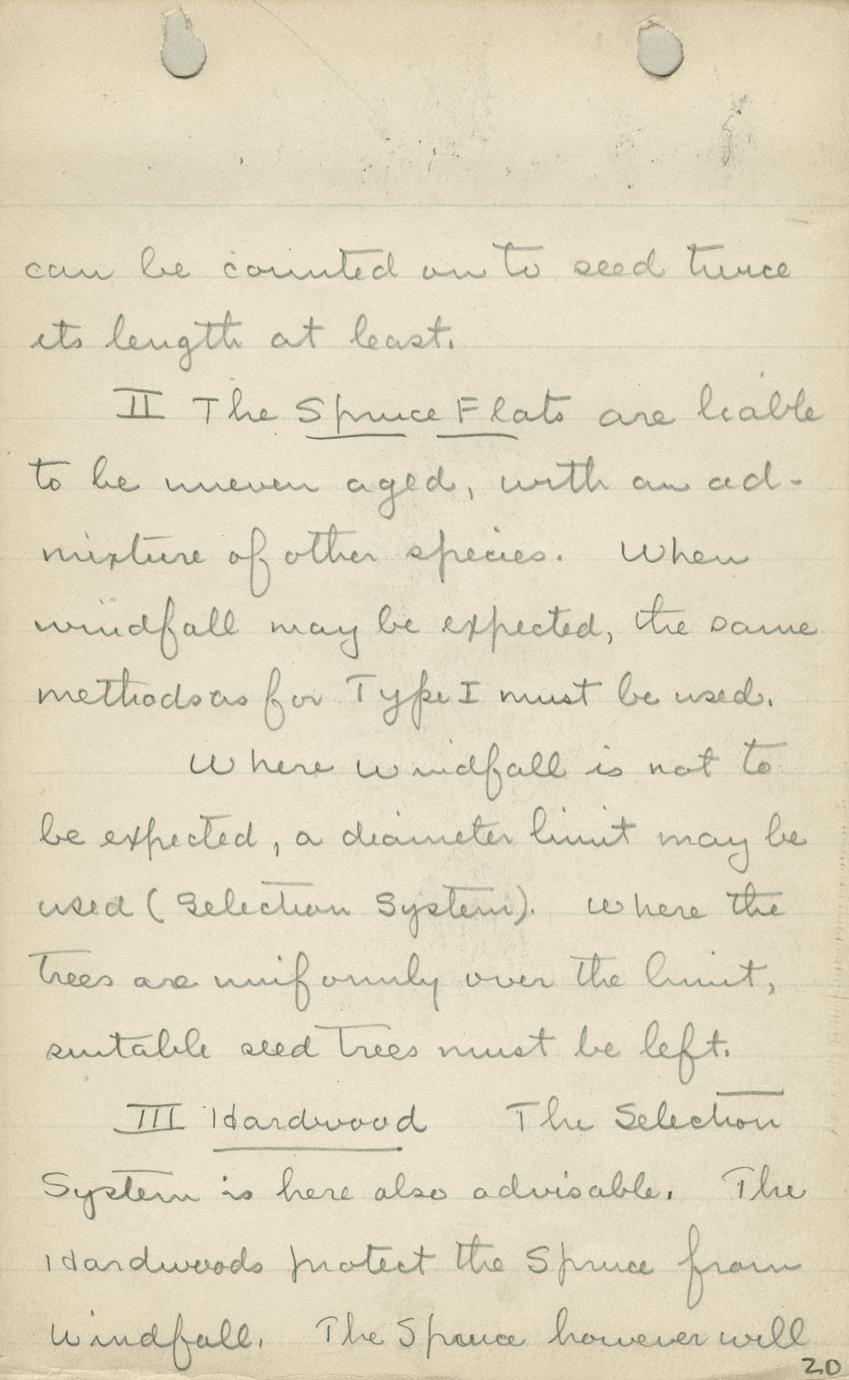 can be counted on to seed twice
its length at least.
II The Spruce Flats are liable
to be uneven aged, with an ad-
mixture of other species. When
windfall may be expected, the same
methods as for Type I must be used.
Where windfall is not to
be expected, a diameter limit may be
used (Selection System). Where the
trees are uniformly over the limit,
suitable seed trees must be left.
III Hardwood The Selection
System is here also advisable. The
Hardwoods protect the Spruce from
Windfall. The Spruce however will
20